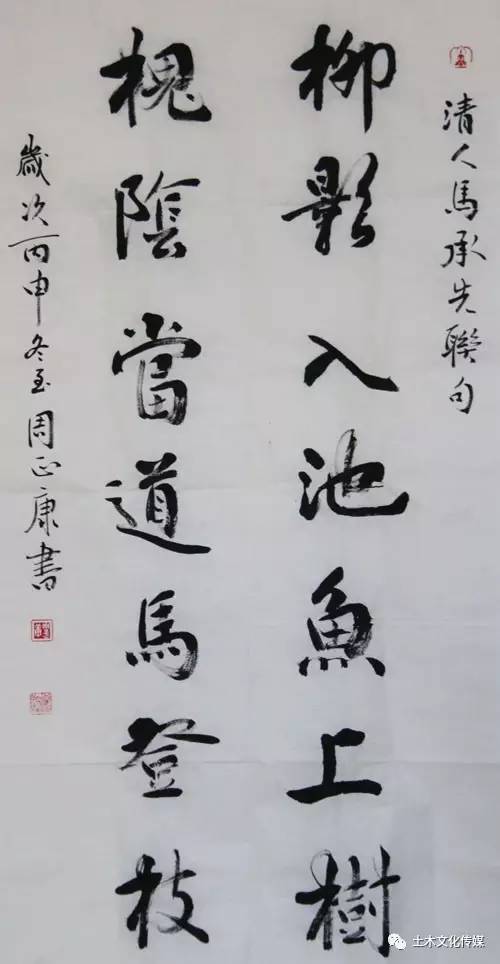 清人馬承先聯句
柳影入池魚上樹
槐陰當道馬登枝
歲次丙申冬至周正康書
土木文化传媒